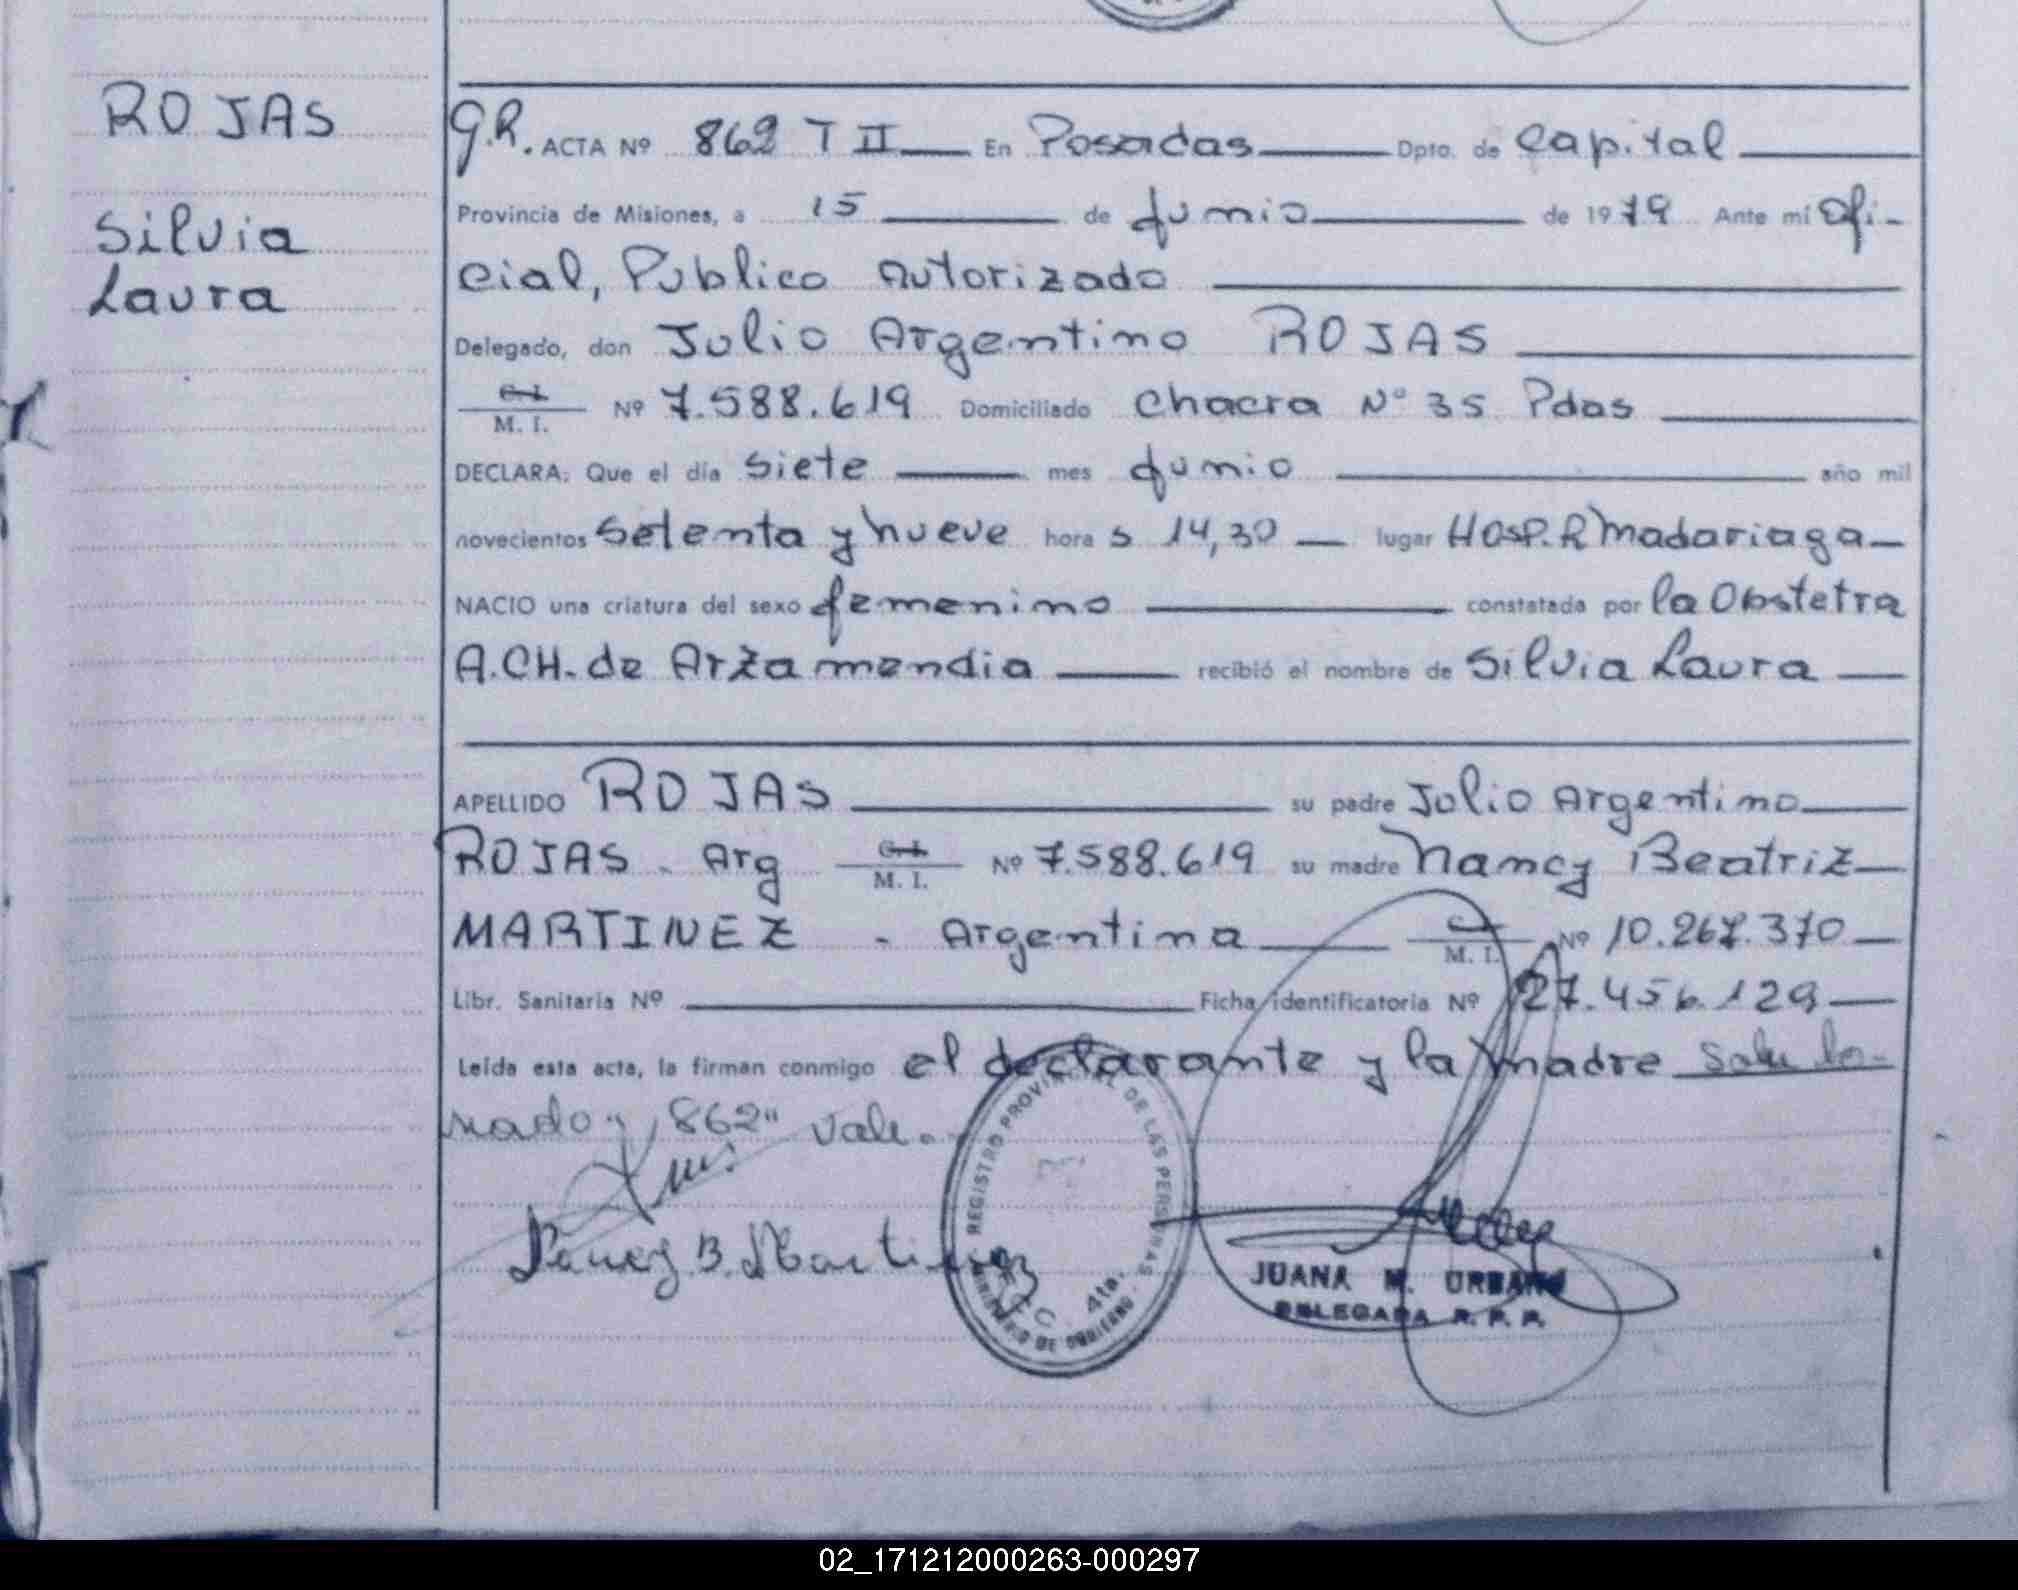 ROJAS
Silvia
Laura
G.R. ACTA Nº 862 T II En Posadas Dpto. de Capital
Provincia de Misiones, a 15 de Junio de 1979 Ante mí Ofi-
cial, Publico Autorizado
Delegado, don Julio Argentino ROJAS
C.I.
M. I. Nº 7.588.619 Domiciliado Chacra Nº 35 Pdas
DECLARA: Que el día Siete mes Junio año mil
novecientos Setenta y nueve hora s 14,30 lugar Hosp. R Madariaga
NACIO una criatura del sexo femenino constatada por la Obstetra
A.CH. de Arzamendia recibió el nombre de Silvia Laura
APELLIDO ROJAS su padre Julio Argentino
ROJAS - Arg C.I. M. I. Nº 7.588.619 su madre Nancy Beatriz
MARTINEZ - Argentina M. I. Nº 10.267.370
Libr. Sanitaria Nº Ficha identificatoria Nº 27.456.129
Leída esta acta, la firman conmigo el declarante y la madre
"862" vale.
Nancy B. Martinez
REGISTRO PROVINCIAL DE LAS PERSONAS
SECC. 4ta.
MINISTERIO DE GOBIERNO
JUANA M. URBANO
DELEGADA R. P. P.
02_171212000263-000297